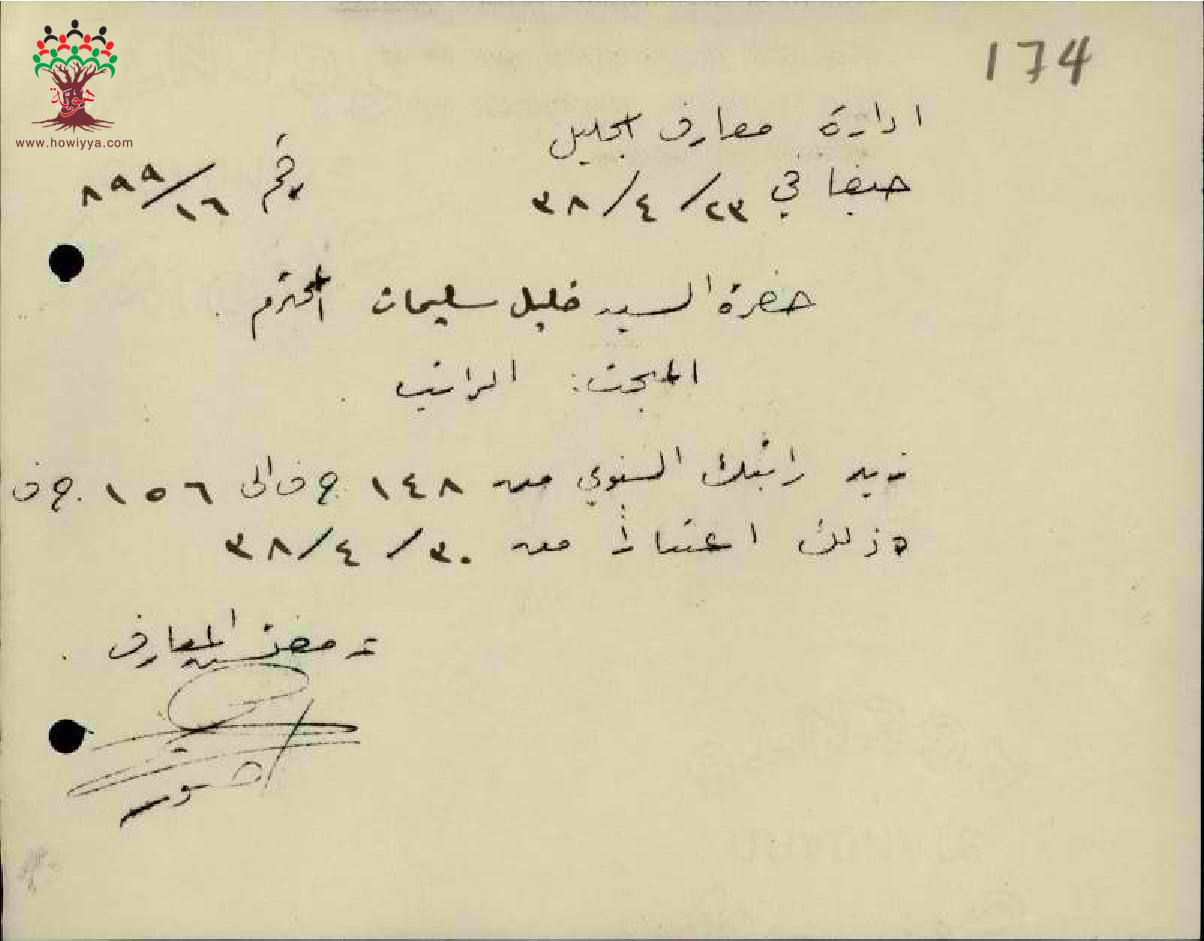 174
هوية
www.howiyya.com
ادارة معارف الجليل
حيفا في ٢٣/٤/٣٨ رقم ٨٩٩/١٦
حضرة السيد خليل سليمان المحترم
المبحث: الراتب
زيد راتبك السنوي من ١٤٨ ج ف الى ١٥٦ ج ف
وذلك اعتباراً من ٣٠/٤/٣٨
ع مفتش المعارف